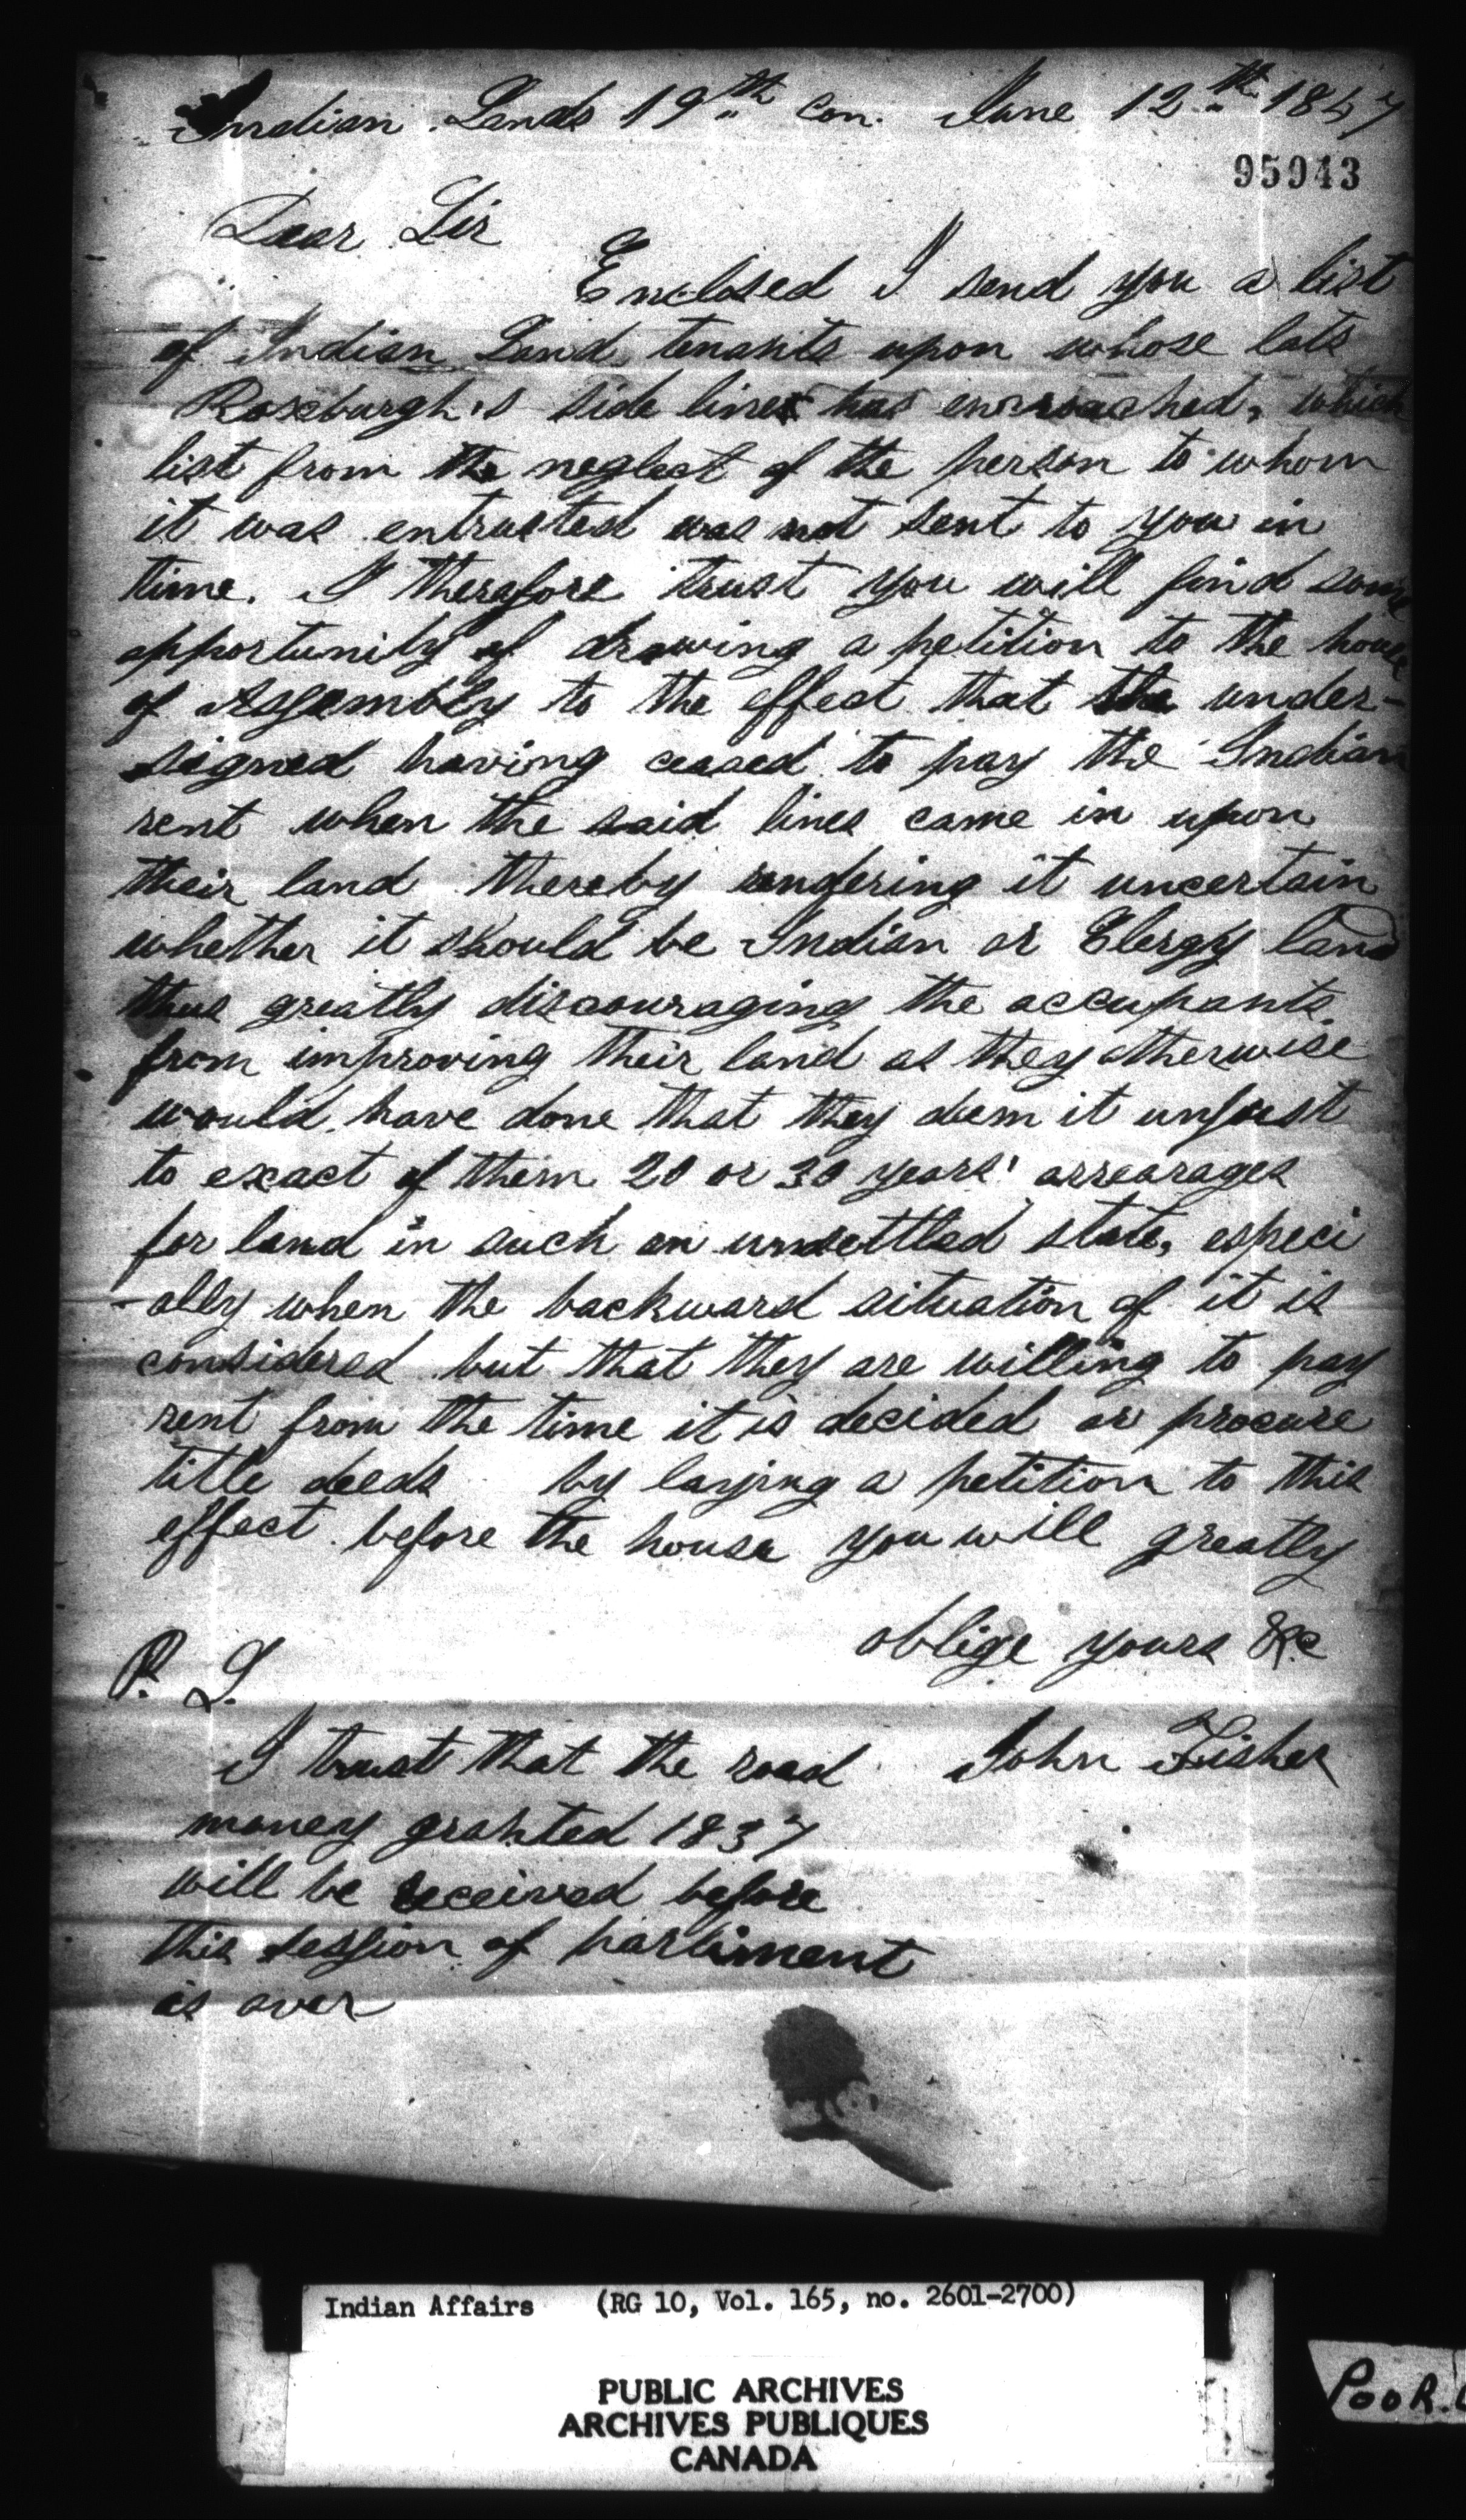 Indian Lands 19th Con. June 12th 1847
95943
Dear Sir
Enclosed I send you a list
of Indian Land tenants upon whose lots
Roxburgh's side lines has encroached, which
list from the neglect of the person to whom
it was entrusted was not sent to you in
time. I therefore trust you will find some
opportunity of drawing a petition to the house
of Assembly to the effect that the under-
signed having ceased to pay the Indian
rent when the said lines came in upon
their land thereby rendering it uncertain
whether it should be Indian or Clergy land
thus greatly discouraging the occupants
from improving their land as they otherwise
would have done that they deem it unjust
to exact of them 20 or 30 years' arrearages
for land in such an unsettled state, especi
-ally when the backward situation of it is
considered but that they are willing to pay
rent from the time it is decided or procure
title deeds by laying a petition to this
effect before the house you will greatly
oblige yours &c
John Fisher
P. S.
I trust that the road
money granted 1837
will be received before
this session of parliment
is over
Indian Affairs (RG 10, Vol. 165, no. 2601-2700)
PUBLIC ARCHIVES
ARCHIVES PUBLIQUES
CANADA
POOR